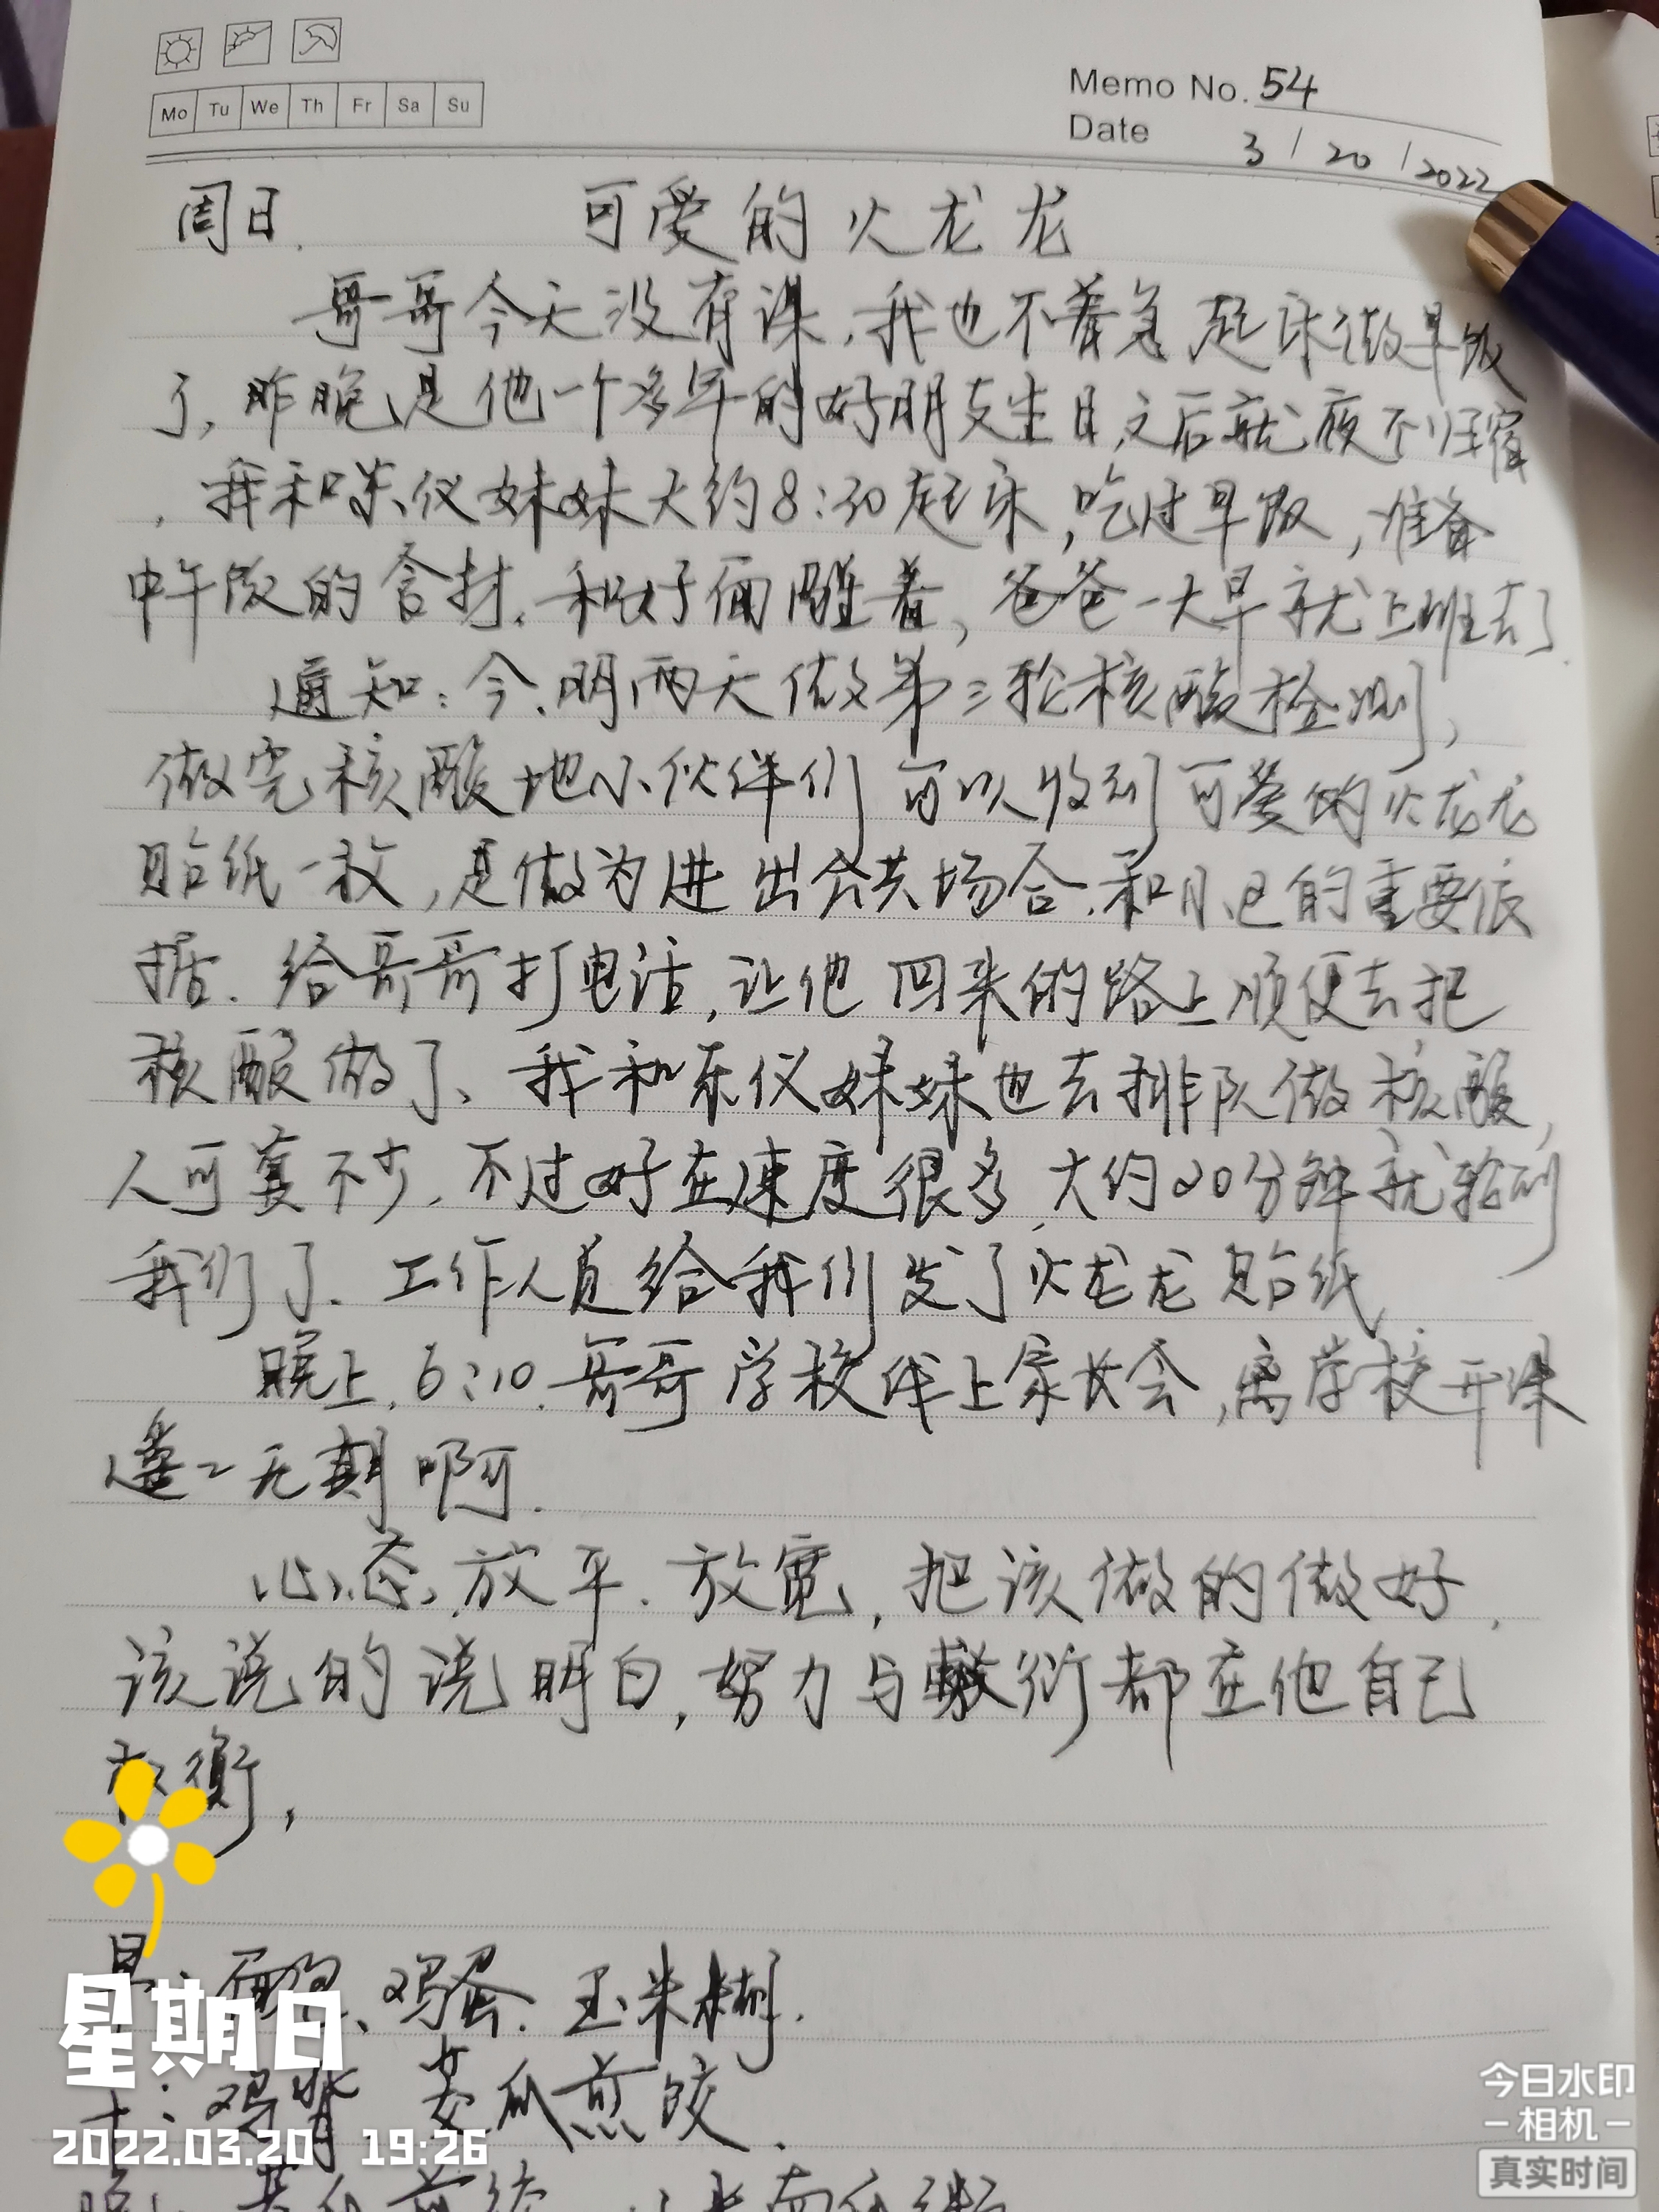 Mo Tu We Th Fr Sa Su
Memo No. 54
Date 3/20/2022
周日. 可爱的火龙龙
哥哥今天没有课,我也不着急起床做早饭
了,昨晚是他一个多年的好朋友生日,之后就夜不归宿
,我和乐仪妹妹大约8:30起床,吃过早饭,准备
中午饭的食材.和好面醒着,爸爸一大早就上班去了.
通知:今、明两天做第三轮核酸检测,
做完核酸地小伙伴们可以收到可爱的火龙龙
贴纸一枚,是做为进出公共场合、和小区的重要依
据.给哥哥打电话,让他回来的路上顺便去把
核酸做了、我和乐仪妹妹也去排队做核酸,
人可真不少.不过好在速度很多,大约20分钟就轮到
我们了.工作人员给我们发了火龙龙贴纸,
晚上,6:10.哥哥学校线上家长会,离学校开课
遥遥无期啊.
心态放平、放宽,把该做的做好,
该说的说明白,努力与敷衍都在他自己
权衡,
早、鸡蛋.玉米糊.
茭瓜煎饺.
星期日
2022.03.20 19:26
今日水印
相机
真实时间